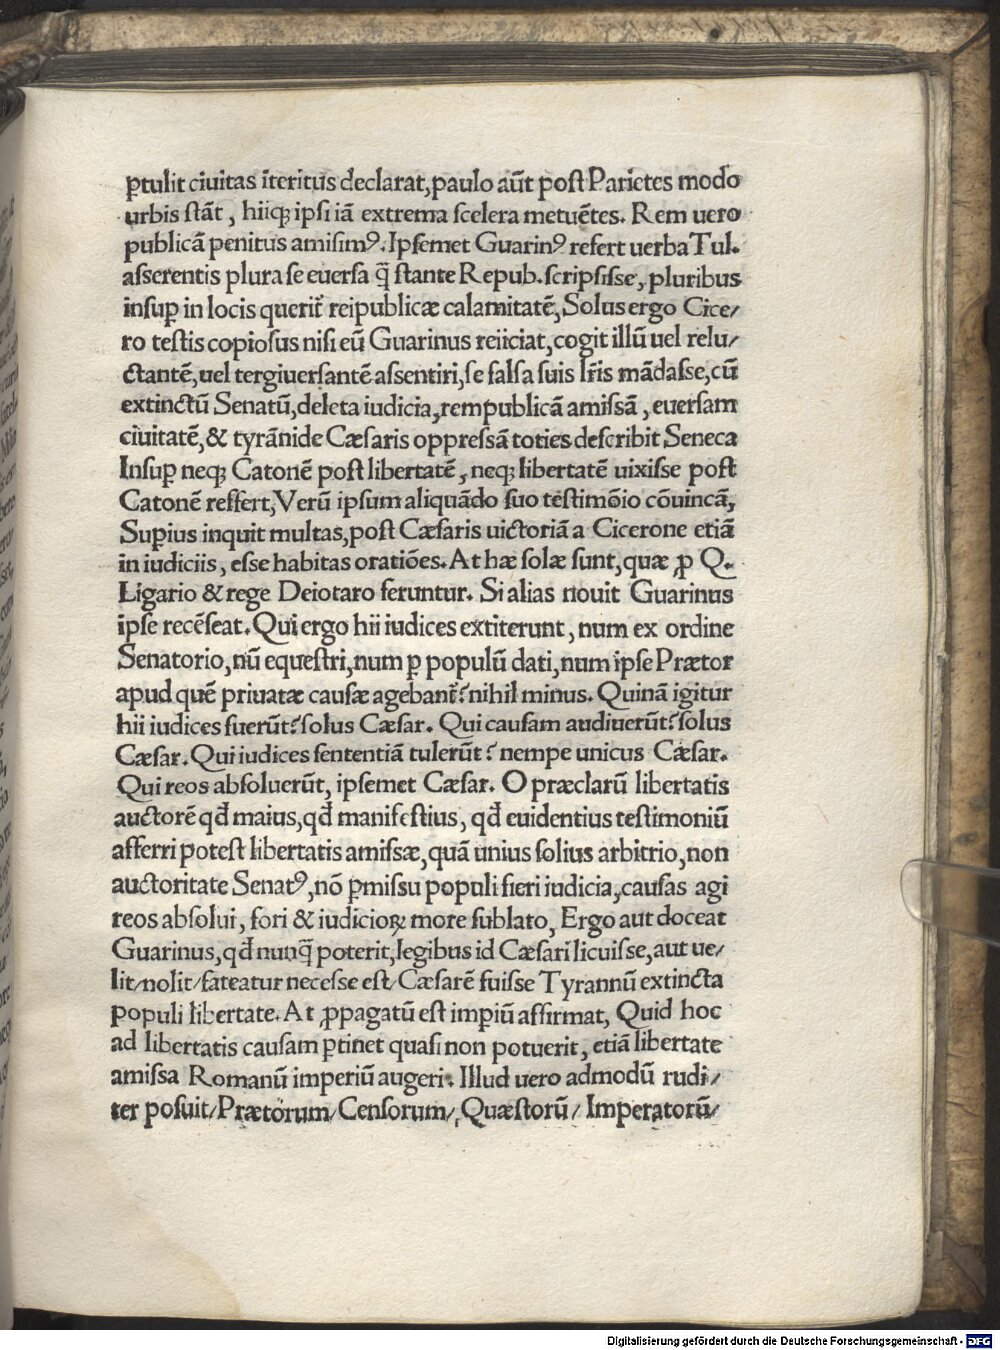 ꝑtulit ciuitas īteritus declarat,paulo aūt post Parietes modo
urbis stāt , hiiqꝫ ipsi iā extrema scelera metuētes. Rem uero
publicā penitus amisimꝰ. Ipsemet Guarinꝰ refert uerba Tul.
asserentis plura se euersa q̄ stante Repub. scripsisse, pluribus
insuꝑ in locis querit᷑ reipublicæ calamitatē, Solus ergo Cice/
ro testis copiosus nisi eū Guarinus reiiciat,cogit illū uel relu/
ctantē,uel tergiuersantē assentiri,se falsa suis lr̄is mādasse,cū
extinctū Senatū,deleta iudicia,rempublicā amissā , euersam
ciuitatē,& tyrānide Cæsaris oppressā toties describit Seneca
Insuꝑ neqꝫ Catonē post libertatē , neqꝫ libertatē uixisse post
Catonē reffert,Verū ipsum aliquādo suo testimōio cōuincā,
Supius inquit multas,post Cæsaris uictoriā a Cicerone etiā
in iudiciis , esse habitas oratiōes. At hæ solæ sunt,quæ ꝓ Q.
Ligario & rege Deiotaro feruntur. Si alias nouit Guarinus
ipse recēseat. Qui ergo hii iudices extiterunt , num ex ordine
Senatorio,nū equestri,num ꝑ populū dati,num ipse Prætor
apud quē priuatæ causæ agebant᷑? nihil minus. Quinā igitur
hii iudices fuerūt? solus Cæsar. Qui causam audiuerūt? solus
Cæsar. Qui iudices sententiā tulerūt? nempe unicus Cæsar.
Qui reos absoluerūt, ipsemet Cæsar. O præclarū libertatis
auctorē qđ maius,qđ manifestius , qđ euidentius testimoniū
afferri potest libertatis amissæ,quā unius solius arbitrio,non
auctoritate Senatꝰ,nō ꝑmissu populi fieri iudicia,causas agi
reos absolui , fori & iudicioꝝ more sublato, Ergo aut doceat
Guarinus,qđ nunq̄ poterit,legibus id Cæsari licuisse,aut ue/
lit/nolit/fateatur necesse est/Cæsarē fuisse Tyrannū extincta
populi libertate. At ꝓpagatū est impiū affirmat, Quid hoc
ad libertatis causam ꝑtinet quasi non potuerit , etiā libertate
amissa Romanū imperiū augeri. Illud uero admodū rudi/
ter posuit/Prætorum/Censorum/Quæstorū/ Imperatorū/
Digitalisierung gefördert durch die Deutsche Forschungsgemeinschaft - DFG